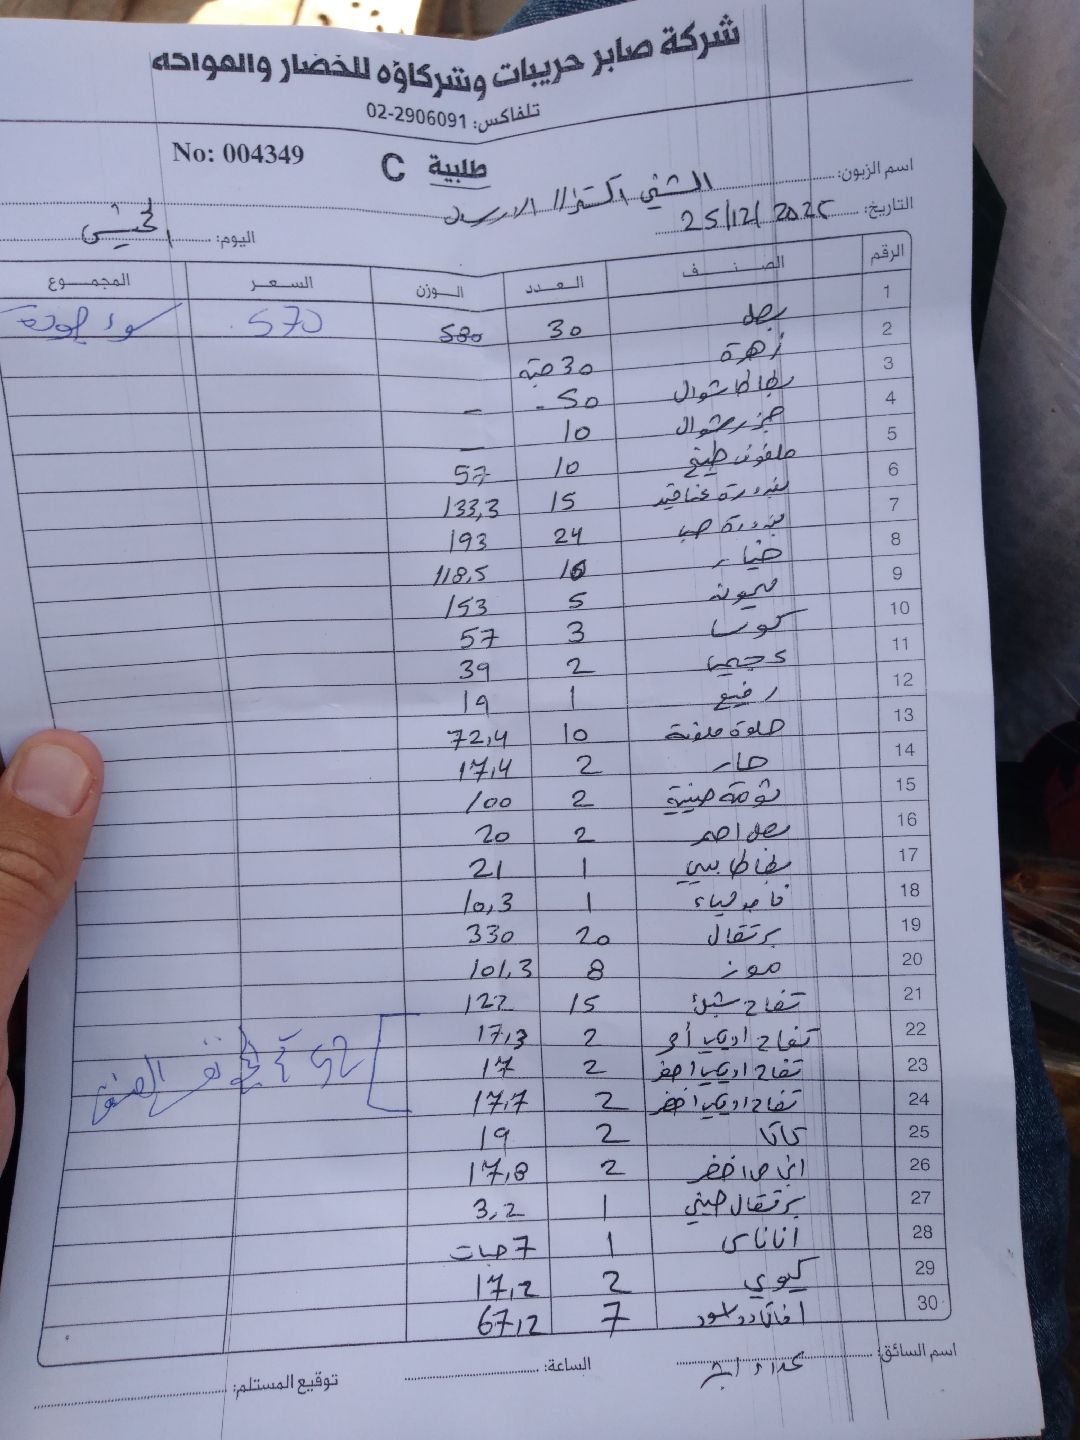 شركة صابر حريبات وشركاؤه للخضار والفواكه
تلفاكس: 02-2906091
No: 004349 طلبية C
اسم الزبون: الشني اكسترا // الارسال
التاريخ: 25/12/2025 اليوم: الخميس
الرقم الصنف العدد الوزن السعر المجموع
1 بصل 30 580 570
2 زهرة 30 حبة
3 بطاطا شوال 50 -
4 جزر شوال 10 -
5 ملفوف طبيخ 10 57
6 بندورة عناقيد 15 133,3
7 بندورة حب 24 193
8 خيار 16 118,5
9 ليمون 5 153
10 كوسا 3 57
11 عجمي 2 39
12 رفيع 1 19
13 حلوة ملونة 10 72,4
14 حار 2 17,4
15 ثومة صينية 2 100
16 بصل احمر 2 20
17 بطاطا بيبي 1 21
18 فاصولياء 1 10,3
19 برتقال 20 330
20 موز 8 101,3
21 تفاح 15 122
22 تفاح 2 17,3
23 تفاح 2 17
24 تفاح اخضر 2 17,7
25 كاكا 2 19
26 اجاص اخضر 2 17,8
27 برتقال صيني 1 3,2
28 اناناس 1 7 حبات
29 كيوي 2 17,2
30 افاكادو اسود 7 67,2
52
اسم السائق: الساعة: توقيع المستلم: